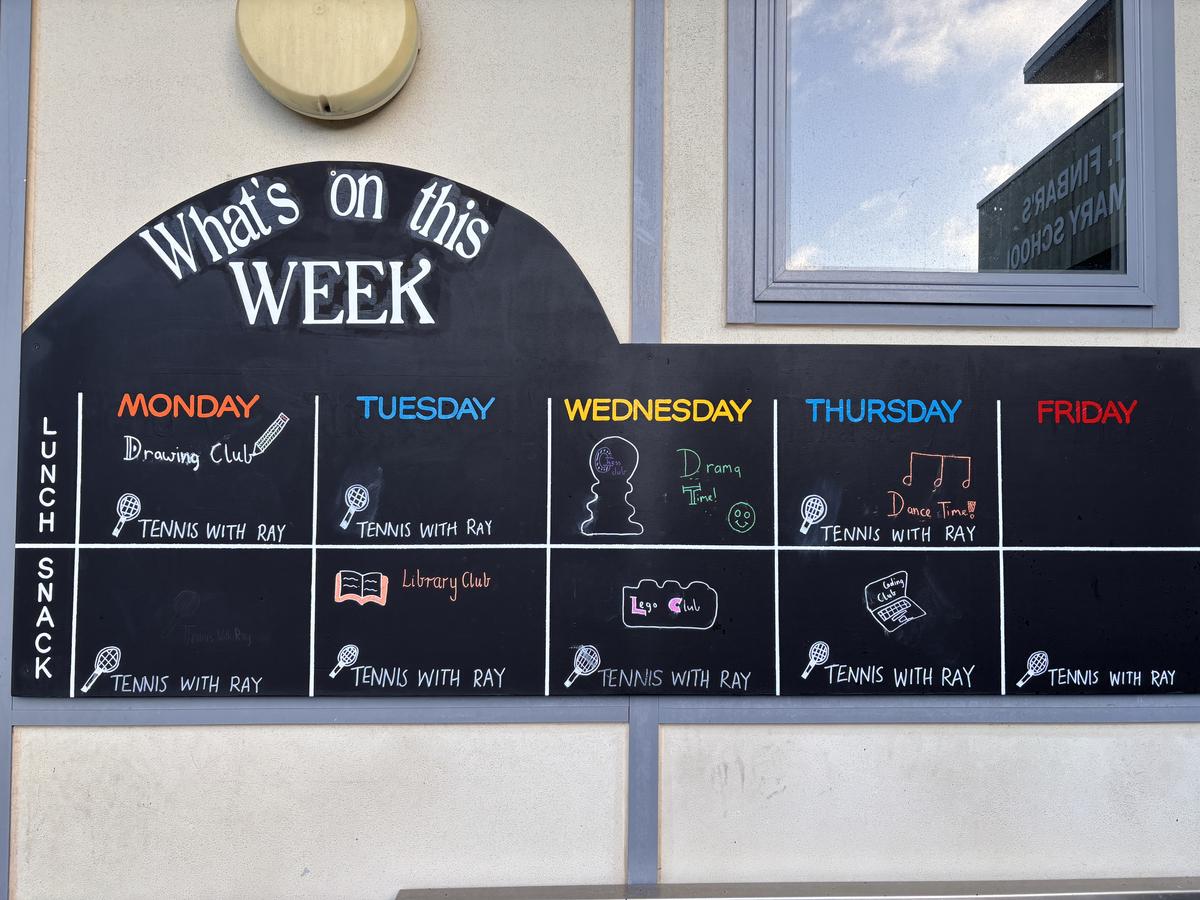 What's on this
WEEK
T. FINBAR'S
MARY SCHOOL
MONDAY
TUESDAY
WEDNESDAY
THURSDAY
FRIDAY
LUNCH
Drawing Club
TENNIS WITH RAY
TENNIS WITH RAY
Chess
club
Drama
Time!
Dance Time!
TENNIS WITH RAY
SNACK
Tennis With Ray
TENNIS WITH RAY
Library Club
TENNIS WITH RAY
Lego Club
TENNIS WITH RAY
Coding
Club
TENNIS WITH RAY
TENNIS WITH RAY